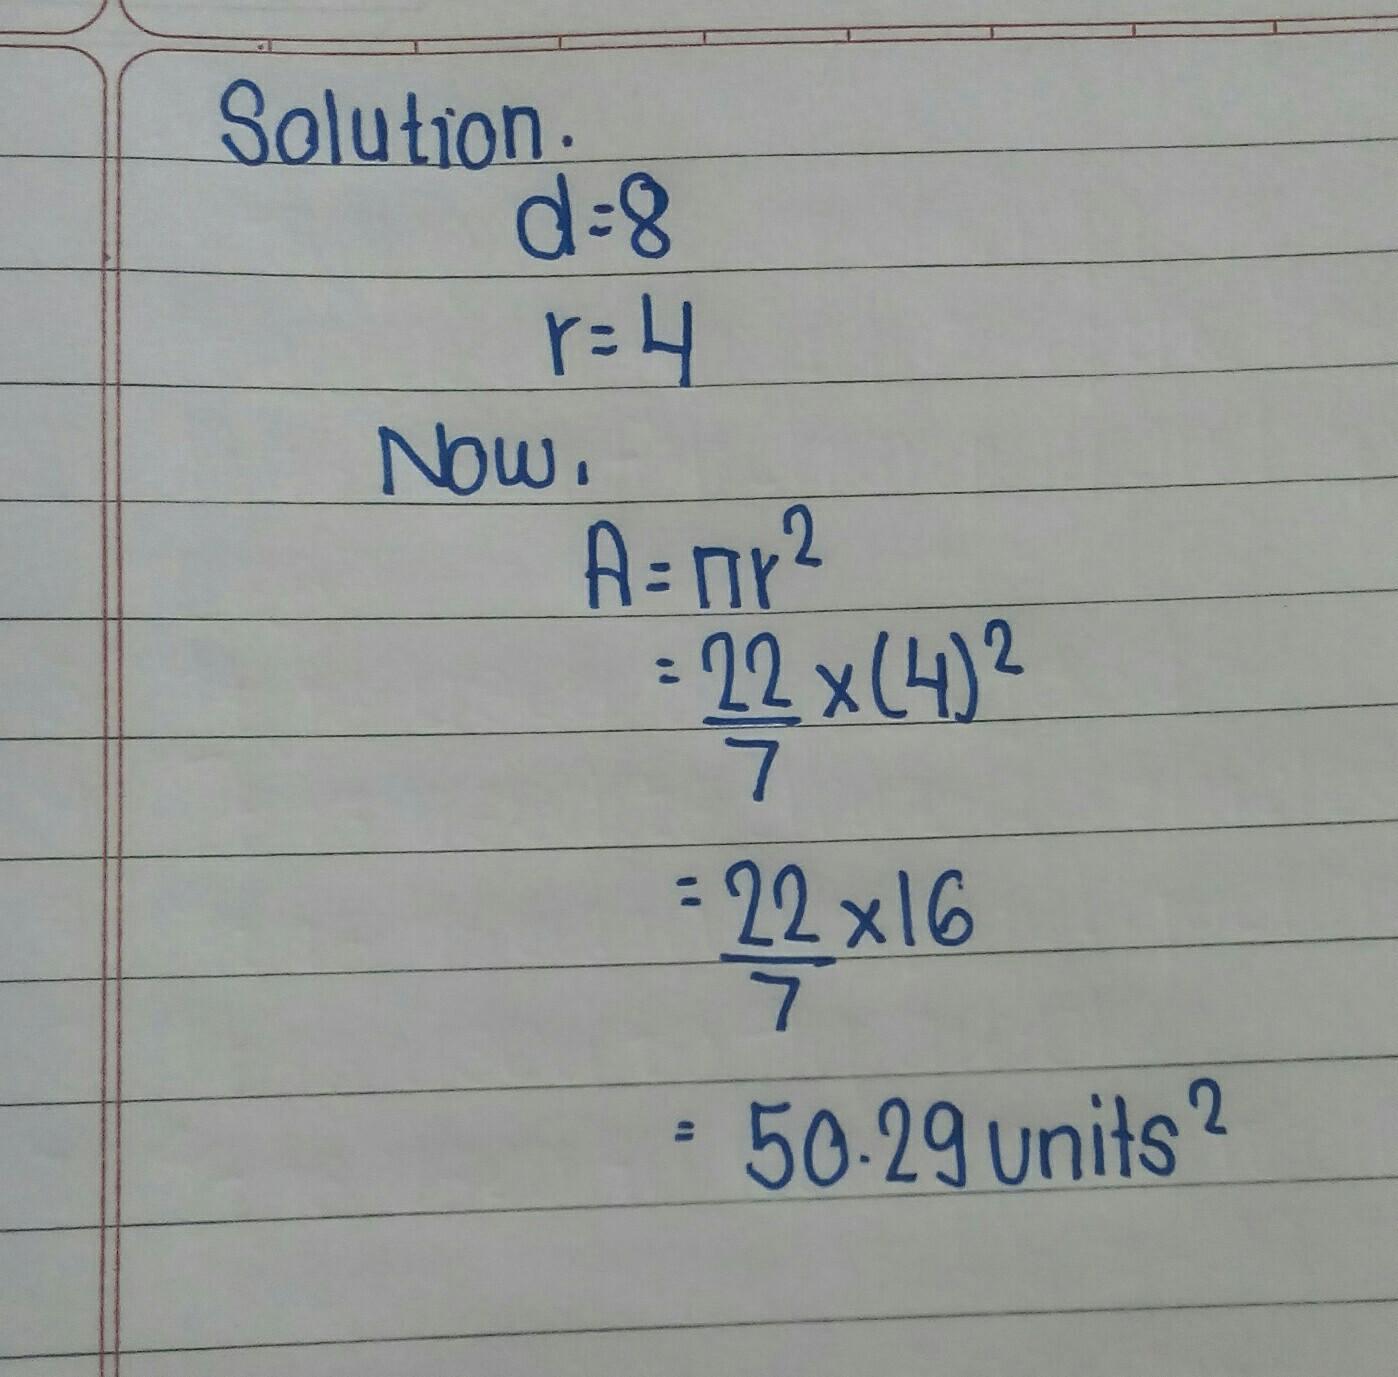 Solution.
d=8
r=4
Now,
A=πr²
=22/7×(4)²
=22/7×16
= 50.29 units²